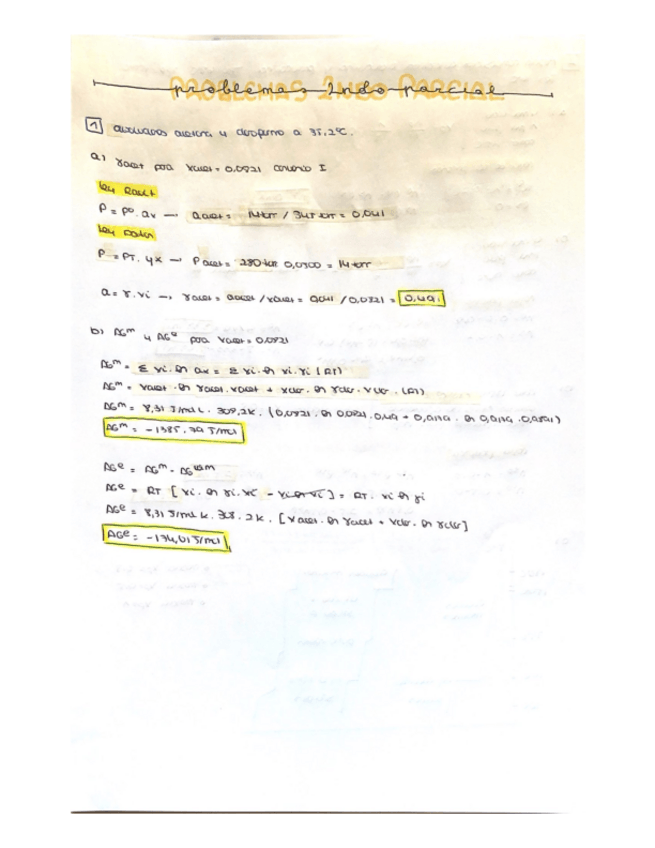 problemas 2ndo parcial
1 acetona y cloroformo a 35,2ºC.
a) γacet para xacet = 0,0821 convenio I
Ley Raoult
P = Pº. ax → aacet = 14torr / 345 torr = 0,041
Ley Dalton
P = PT. yx → Pacet = 280torr 0,0500 = 14torr
a = γ. xi → γacet = aacet / xacet = 0,041 / 0,0821 = 0,49
b) ΔGm y ΔGe para xacet = 0,0821
ΔGm = Σ xi. ln ax = Σ xi. ln xi. γi (RT)
ΔGm = xacet. ln γacet. xacet + xclor. ln γclor. xclor. (RT)
ΔGm = 8,31 J/mol k. 308,2k. (0,0821. ln 0,0821. 0,49 +
ΔGm = -1385,79 J/mol
ΔGe = ΔGm - ΔG
ΔGe = RT [xi. ln γi. xi - xi ln xi] = RT. xi ln γi
ΔGe = 8,31 J/mol k. 308,2k. [xacet. ln γacet + xclor. ln γclor]
ΔGe = -174,01 J/mol